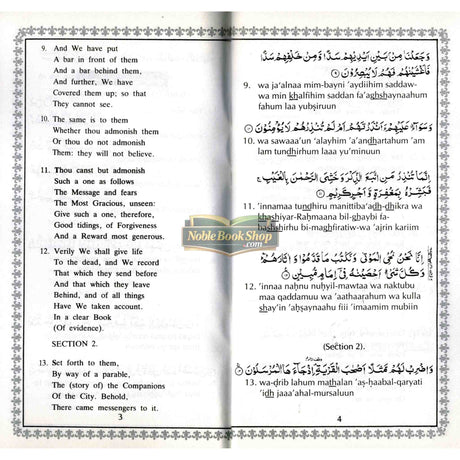 9. And We have put
A bar in front of them
And a bar behind them,
And further, We have
Covered them up; so that
They cannot see.
10. The same is to them
Whether thou admonish them
Or thou do not admonish
Them: they will not believe.
11. Thou canst but admonish
Such a one as follows
The Message and fears
The Most Gracious, unseen:
Give such a one, therefore,
Good tidings, of Forgiveness
And a Reward most generous.
12. Verily We shall give life
To the dead, and We record
That which they send before
And that which they leave
Behind, and of all things
Have We taken account.
In a clear Book
(Of evidence).
SECTION 2.
13. Set forth to them,
By way of a parable,
The (story of) the Companions
Of the City. Behold,
There came messengers to it.
3
وَجَعَلْنَا مِنْ بَيْنِ أَيْدِيهِمْ سَدًّا وَمِنْ خَلْفِهِمْ سَدًّا
فَأَغْشَيْنَاهُمْ فَهُمْ لَا يُبْصِرُونَ ۹
9. wa ja'alnaa mim-bayni 'aydiihim saddaw-
wa min khalfihim saddan fa'aghshaynaahum
fahum laa yubsiruun
وَسَوَاءٌ عَلَيْهِمْ ءَأَنْذَرْتَهُمْ أَمْ لَمْ تُنْذِرْهُمْ لَا يُؤْمِنُونَ ۱۰
10. wa sawaaa'un 'alayhim 'a'andhartahum 'am
lam tundhirhum laaa yu'minuun
إِنَّمَا تُنْذِرُ مَنِ اتَّبَعَ الذِّكْرَ وَخَشِيَ الرَّحْمٰنَ بِالْغَيْبِ
فَبَشِّرْهُ بِمَغْفِرَةٍ وَأَجْرٍ كَرِيمٍ ۱۱
11. 'innamaa tundhiru manittiba'adh-dhikra wa
khashiyar-Raḥmaana bil-ghaybi fa-
bashshirhu bi-maghfiratiw-wa 'ajrin kariim
NobleBookShop
.com
إِنَّا نَحْنُ نُحْيِ الْمَوْتَى وَنَكْتُبُ مَا قَدَّمُوا وَآثَارَهُمْ
وَكُلَّ شَيْءٍ أَحْصَيْنَاهُ فِي إِمَامٍ مُبِينٍ ۱۲
12. 'innaa naḥnu nuḥyil-mawtaa wa naktubu
maa qaddamuu wa 'aathaarahum wa kulla
shay'in 'aḥṣaynaahu fiii 'imaamim mubiin
(Section 2).
وَاضْرِبْ لَهُمْ مَثَلًا أَصْحَابَ الْقَرْيَةِ إِذْ جَاءَهَا الْمُرْسَلُونَ ۱۳
13. wa-ḍrib lahum mathalan 'aṣ-ḥaabal-qaryati
'idh jaaa'ahal-mursaluun
4